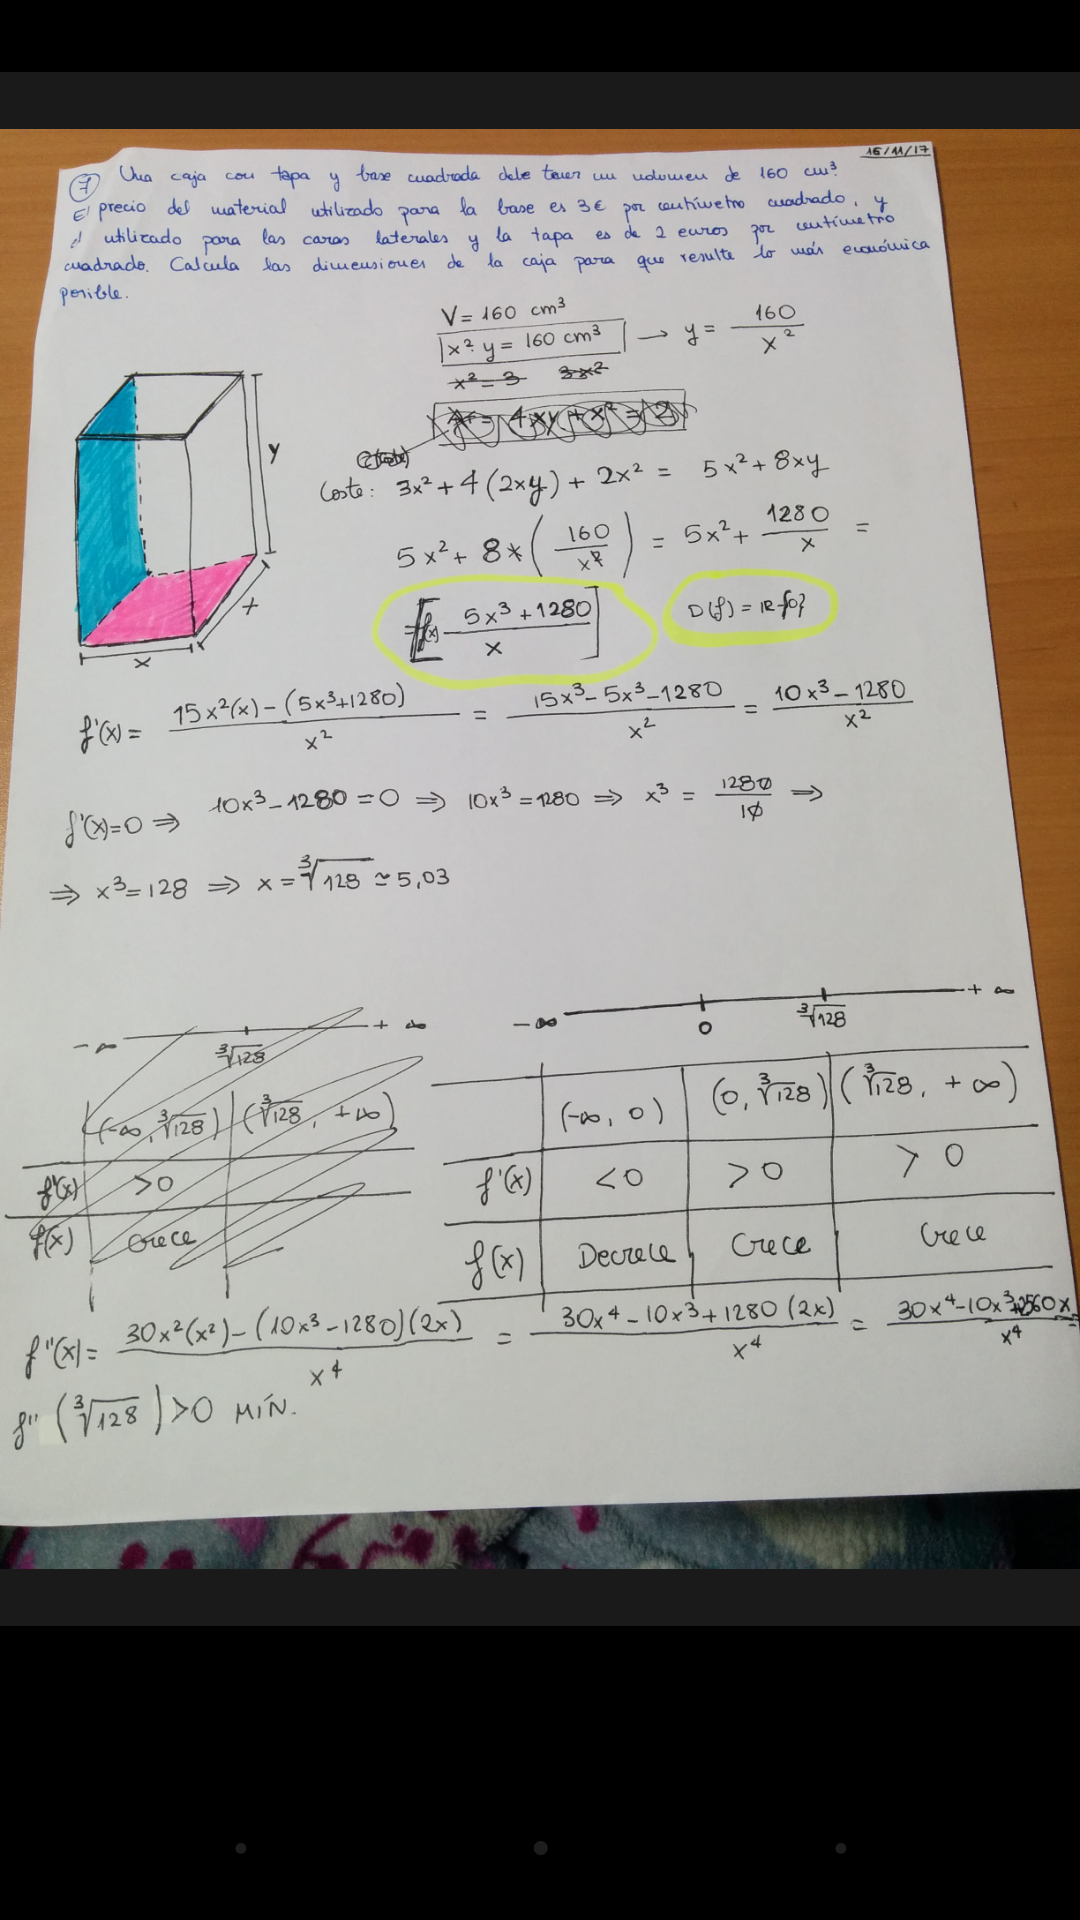 16/11/17
⑦ Una caja con tapa y base cuadrada debe tener un volumen de 160 cm³
El precio del material utilizado para la base es 3€ por centímetro cuadrado, y
el utilizado para las caras laterales y la tapa es de 2 euros por centímetro
cuadrado. Calcula las dimensiones de la caja para que resulte lo más económica
posible.
V = 160 cm³
x²·y = 160 cm³ → y = 160/x²
x² = 3 3x²
y
x
x
Coste: 3x² + 4(2xy) + 2x² = 5x² + 8xy
5x² + 8x(160/x²) = 5x² + 1280/x =
= [f(x) = (5x³+1280)/x] D(f) = ℝ-{0}
f'(x) = (15x²(x) - (5x³+1280))/x² = (15x³-5x³-1280)/x² = (10x³-1280)/x²
f'(x)=0 ⇒ 10x³-1280=0 ⇒ 10x³=1280 ⇒ x³ = 1280/10 ⇒
⇒ x³=128 ⇒ x=∛128 ≃ 5,03
-∞ ∛128 +∞
(-∞, ∛128) (∛128, +∞)
f'(x) >0
f(x) Crece
-∞ 0 ∛128 +∞
(-∞, 0) (0, ∛128) (∛128, +∞)
f'(x) <0 >0 >0
f(x) Decrece Crece Crece
f''(x) = (30x²(x²) - (10x³-1280)(2x))/x⁴ = (30x⁴-10x³+1280(2x))/x⁴ = (30x⁴-10x³+2560x)/x⁴ =
f''(∛128)>0 MÍN.